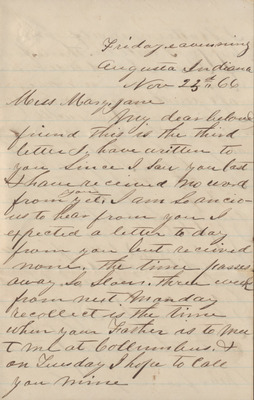 Friday eavenning
Augusta Indiana
Nov 23th 66
Miss Mary Jane
My dear belove
friend this is the third
letter I have written to
you since I saw you last
& I have received no word
from you yet. I am so ancio-
us to hear from you I
expected a letter to day
from you but recieved
none. the time passes
away so slow. three week
from next Monday
recollect is the time
when your Father is to mee
t me at Collumbus. &
on Tuesday I hope to call
you mine